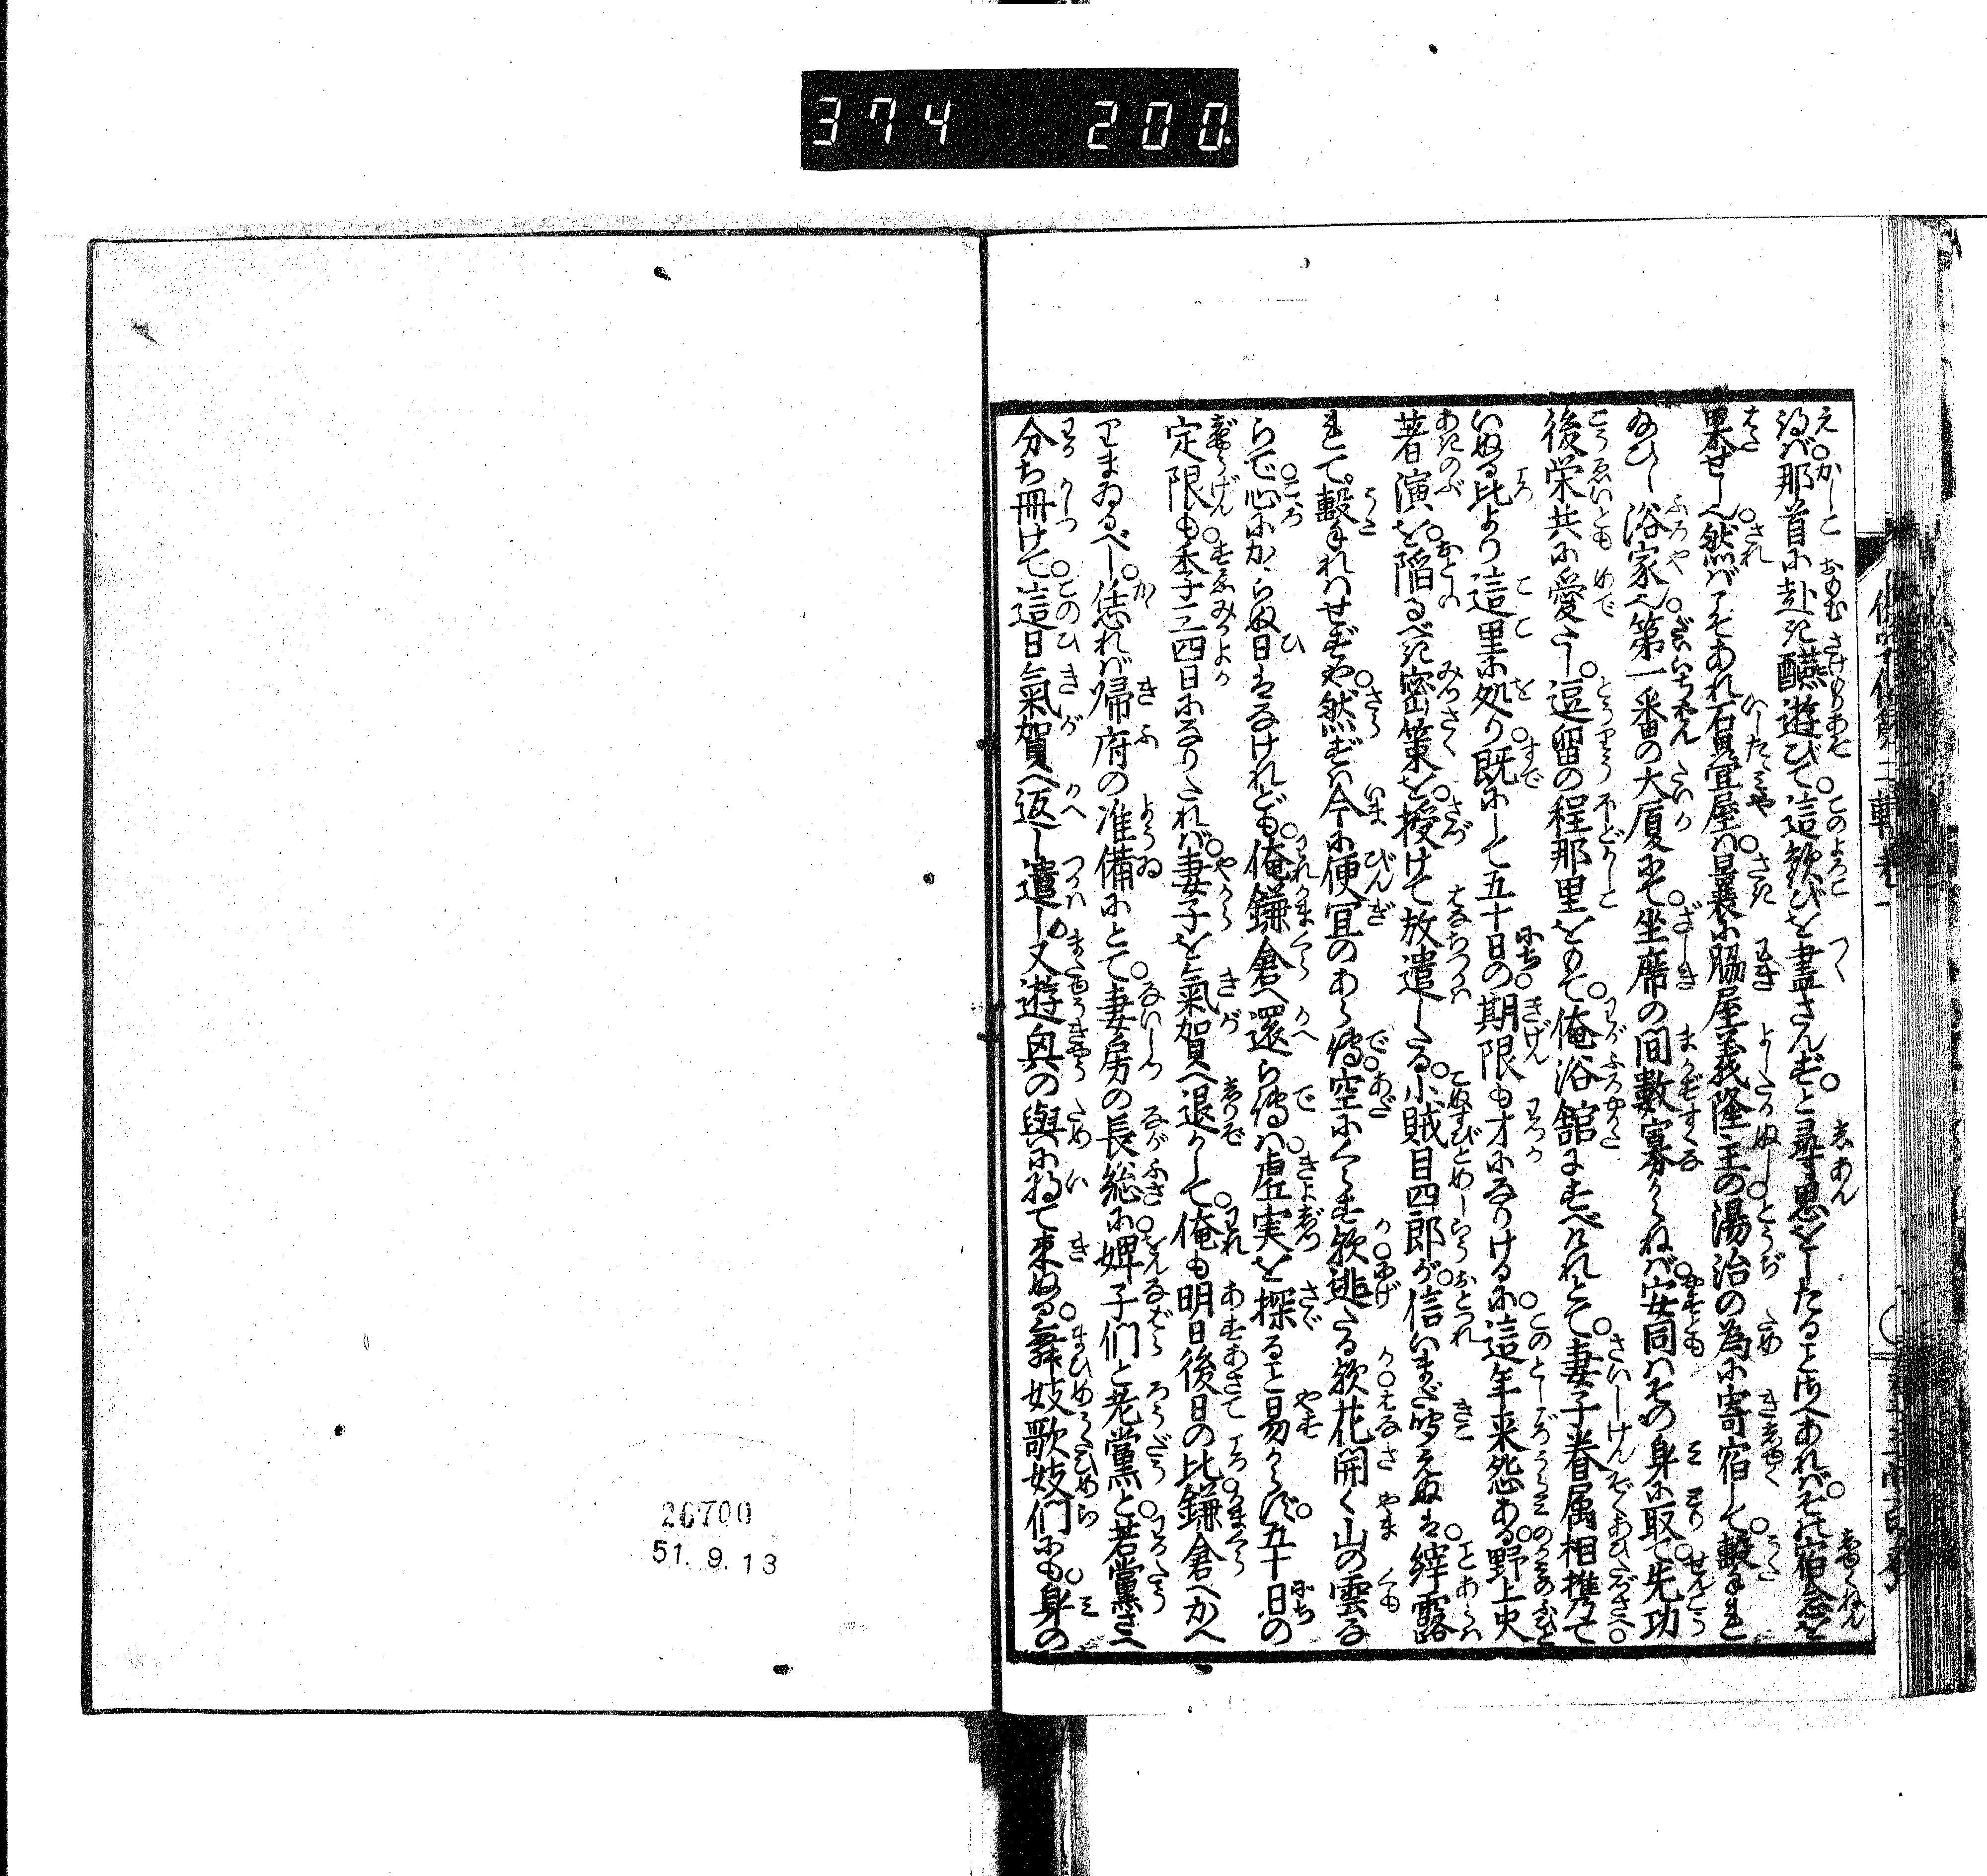 374 200.
得ば那首に赴き醼遊びて這歓びを尽さんずと尋思をしたることさへあればその宿念を
果せし也然ばこそあれ石見宜屋は曩に脇屋義隆主の湯治の為に寄宿して轂まれ
給ひし浴家也第一番の大廈にて坐席の間数寡からねば安同はその身に取て先功
後栄共に愛たし逗留の程那里をもて俺浴館にすべけれとて妻子眷属相携て
いぬる比より這里に処り既にして五十日の期限も才になりける小這年来怨ある野上史
著演を陥るべき密策を授けて放遣したる小賊目四郎が信いまだ聞えぬは縡露
れて轂れはせずや然ずは今に便宜のあらで空にくらす歟逃たる歟花開く山の雲な
らで心にかゝらぬ日はなけれども俺鎌倉へ還らでは虚実を探ること易からず五十日の
定限も季子三四日になりたれば妻子を氣賀へ退かして俺も明日後日の比鎌倉へかへ
りまゐるべし恁れば帰府の准備にとて妻房の長総に婢子们と老黨と若黨さへ
分ち冊けて這日氣賀へ返し遣し又遊興の與に将て来ぬる舞妓歌妓们にも身の
26700
51. 9. 13